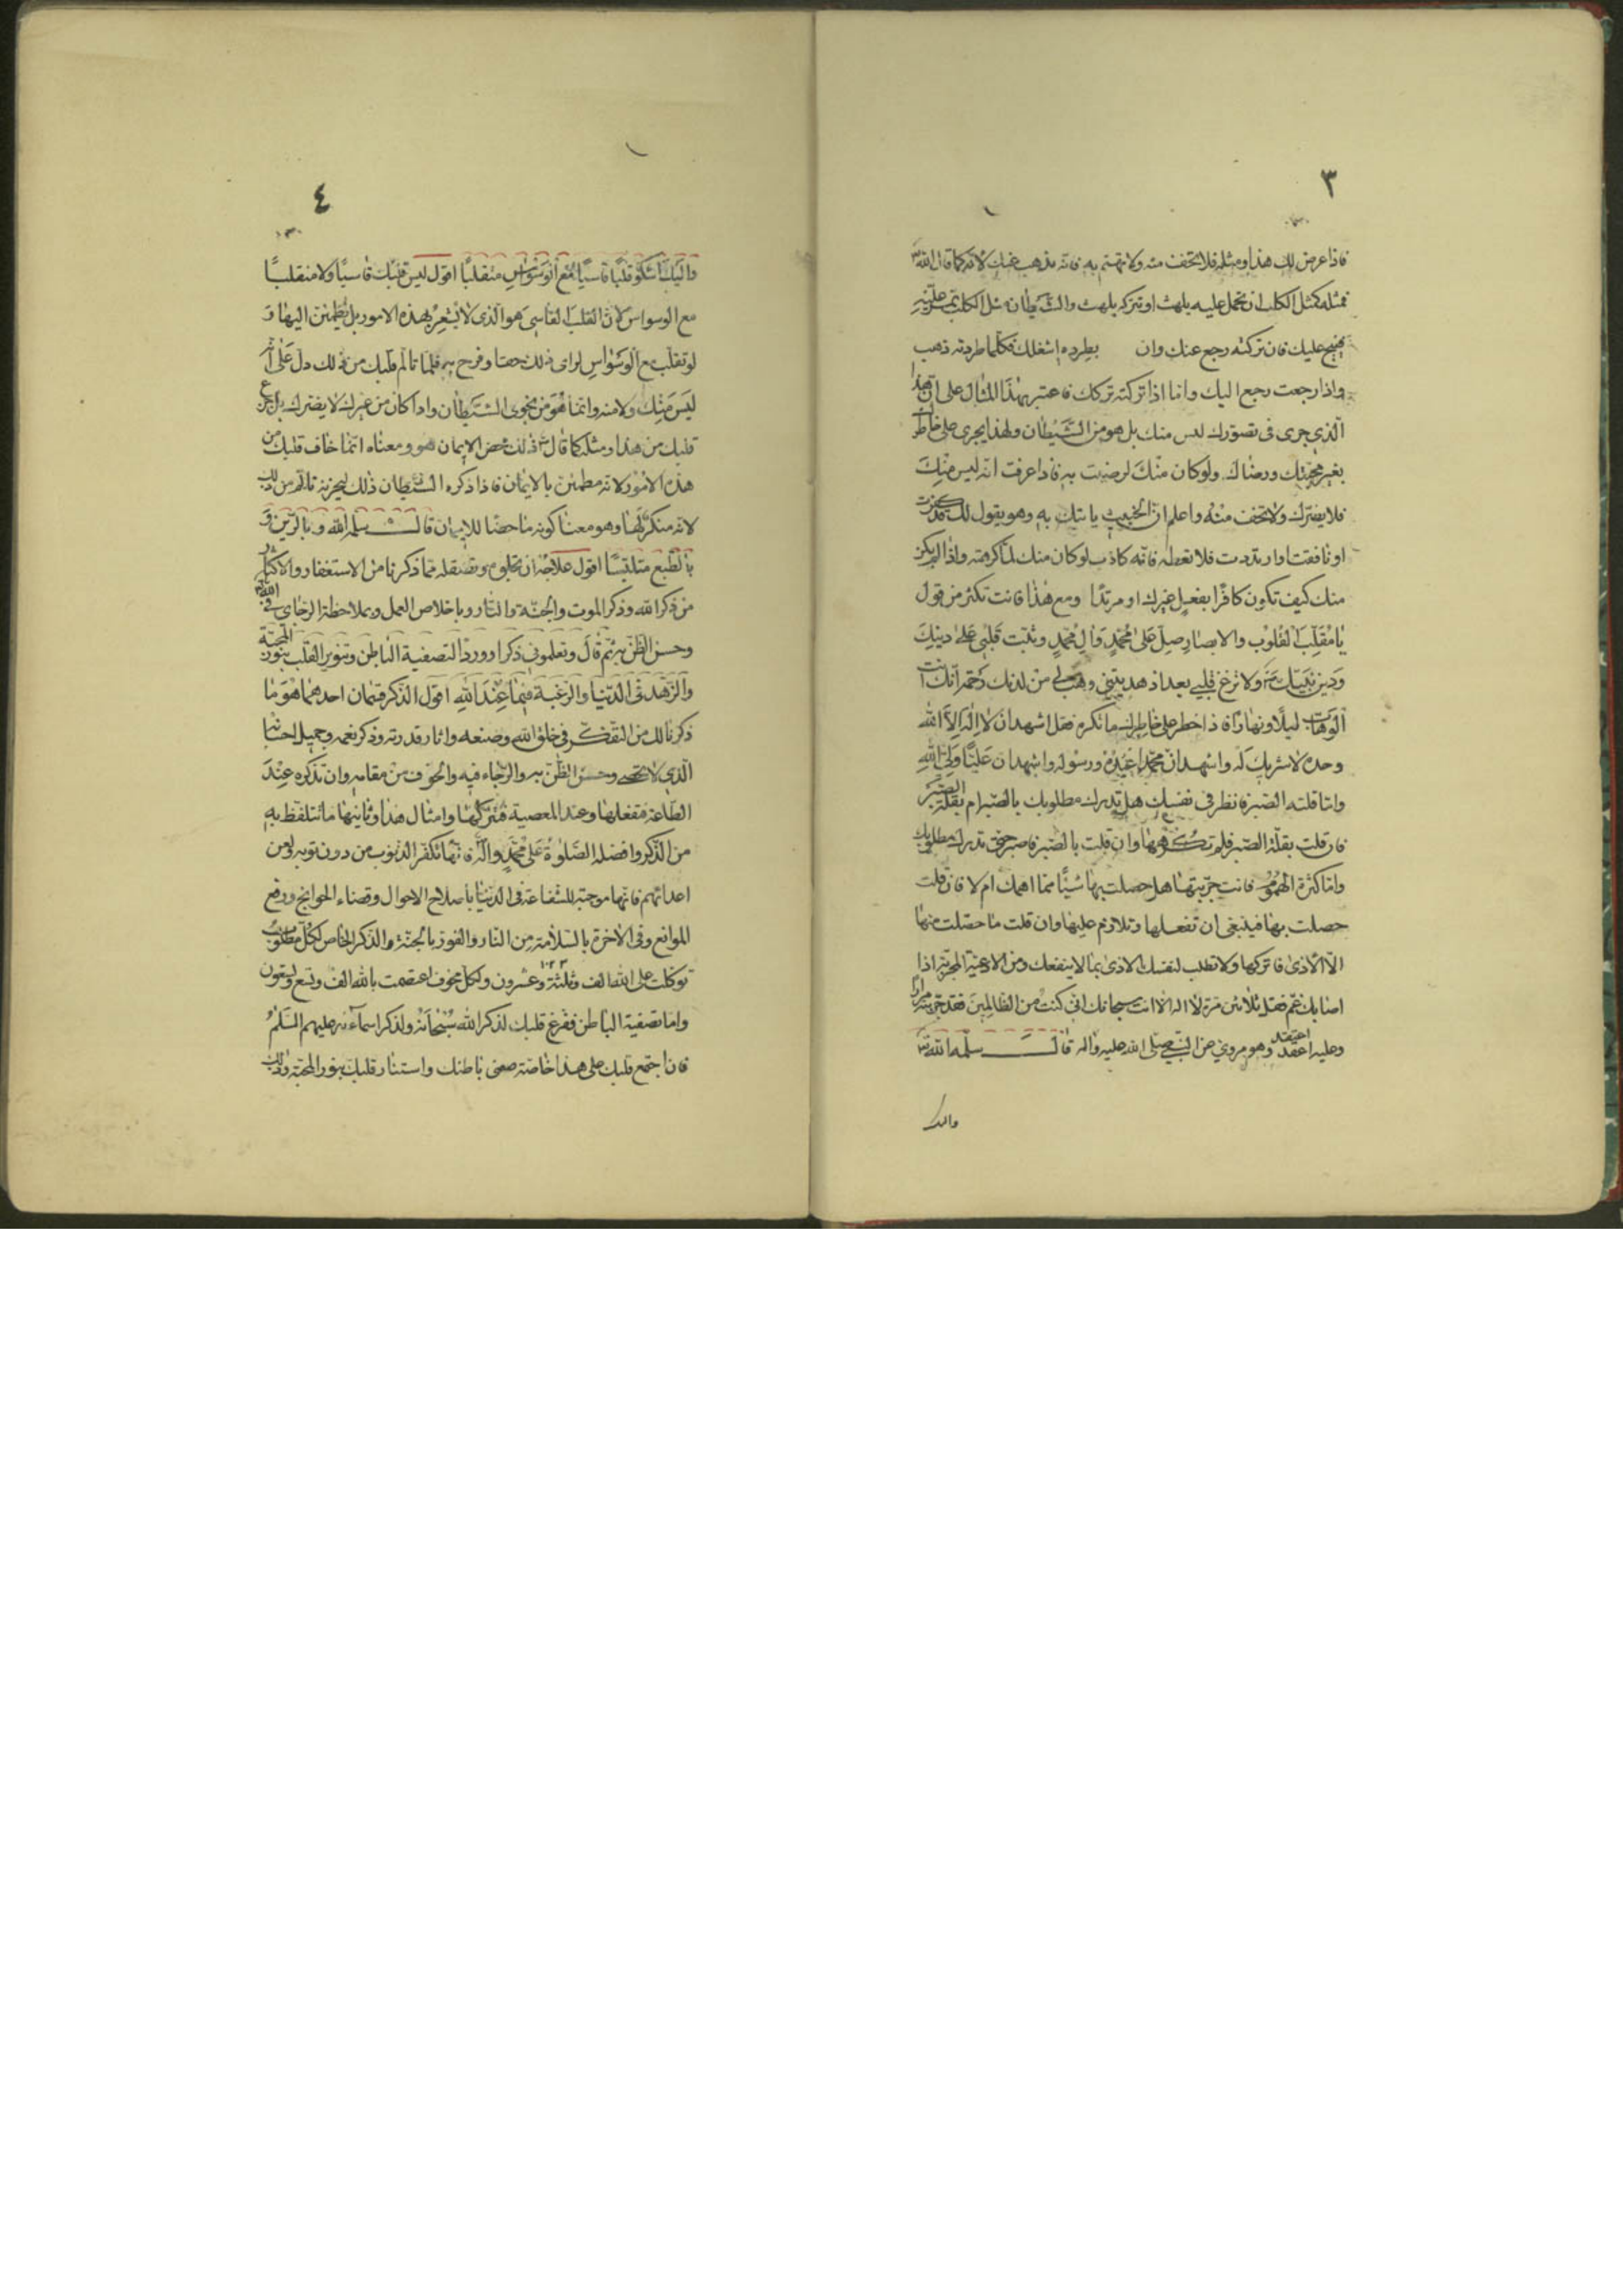 ٣
فاذا عرض لك هذا ومثله فلا تخف منه ولا تهتم به فانه يذهب عنك لانه كما قال الله تعالى
فمثله كمثل الكلب ان تحمل عليه يلهث او تتركه يلهث والشيطان مثل الكلب
عليك فان تركته رجع عنك وان بطرده اشغلك فكلما طردته ذهب
واذا رجعت رجع اليك واما اذا تركته تركك فاعتبر بهذا المثال على ان هذا
الذي جرى فى تصورك ليس منك بل هو من الشيطان ولهذا يجرى على خاطرك
بغير محبتك ورضاك ولو كان منك لرضيت به فاذا عرفت انه ليس منك
فلا يضرك ولا تخف منه واعلم ان الخبيث ياتيك به وهو يقول لك قد كفرت
او نافقت او ارتددت فلا تعطه فانه كاذب لو كان منك لما كرهته واذا لم يكن
منك كيف تكون كافرًا بفعل غيرك او مرتدًا ومع هذا فانت تكثر من قول
يا مُقَلِّبَ القُلُوب والابصار صلّ على مُحَمَّدٍ وَالِ مُحَمَّدٍ وثبت قلبى على دينك
وَدين نبيّك ولا تزغ قلبى بعد اذ هديتنى وهب لى من لدنك رحمة انك انت
الوهاب ليلًا ونهارًا فاذا خطر على خاطرك ما تكره فقل اشهد ان لا اله الا الله
وحده لا شريك له واشهد ان محمدا عبده ورسوله واشهد ان عليًّا ولى الله
واما قلته الصبر فانظر فى نفسك هل تدرك مطلوبك بالصبر ام بقلة الصبر
فان قلت بقلة الصبر فلم تكرهها وان قلت بالصبر فاصبر حتى تدرك مطلوبك
واما كثرة الهموم فانت جرّبتها هل حصلت بها شيئًا مما اهمك ام لا فان قلت
حصلت بها فينبغى ان تفعلها وتلازم عليها وان قلت ما حصلت منها
الا الاذى فاتركها ولا تطلب لنفسك الاذى بما لا ينفعك ومن الادعية المجربة اذا
اصابك غم فقل ثلاثين مرة لا اله الا انت سبحانك انى كنت من الظالمين فقد جربته مرارا
وعليه اعتقد وهو مروي عن النبي صلى الله عليه واله قال سلمه الله تعالى
واليك
٤
واليك اشكو قلبًا قاسيًا مع الوسواس متقلبًا اقول ليس قلبك قاسيًا ولا متقلبًا
مع الوسواس لان القلب القاسى هو الذى لا يشعر بهذه الامور بل يطمئن اليها و
لو تقلب مع الوسواس لراى ذلك حقا وفرح به فلما تالم قلبك من ذلك دل على انه
ليس منك ولا منه وانما هو من نجوى الشيطان واذا كان من غيرك لا يضرك بل
قلبك من هذا ومثله كما قال ذلك محض الايمان هو ومعناه انما خاف قلبك من
هذه الامور لانه مطمئن بالايمان فاذا ذكره الشيطان ذلك ليحزنه تالم من ذلك
لانه منكر لها وهو معنا كونه ماحضا للايمان قال سلمه الله وبالرين و
بالطبع متلبسًا اقول علاجه ان تجلوه وتصقله مما ذكرنا من الاستغفار والاكثار
من ذكر الله وذكر الموت والجنة والنار وباخلاص العمل وبملاحظة الرجاى فى الله
وحسن الظن به ثم قال وتعلمونى ذكرا ووردا لتصفية الباطن وتنوير القلب بنور المحبة
والزهد فى الدنيا والرغبة فيما عند الله اقول الذكر قسمان احدهما هو ما
ذكرنا لك من التفكر فى خلق الله وصنعه واثار قدرته وذكر نعمه وجميل احسانه
الذى لا يحصى وحسن الظن به والرجاء فيه والخوف من مقامه وان تذكره عند
الطاعة فتفعلها وعند المعصية فتتركها وامثال هذا وثانيهما ما تتلفظ به
من الذكر وافضله الصلوة على محمد واله فانها تكفر الذنوب من دون توبه ولعن
اعدائهم فانها موجبة للشفاعة فى الدنيا باصلاح الاحوال وقضاء الحوايج ورفع
الموانع وفى الاخرة بالسلامة من النار والفوز بالجنة والذكر الخاص لكل مطلوب
توكلت على الله الف وثلثة وعشرون ١٠٢٣ ولكل مخوف اعتصمت بالله الف وتسع وتسعون
واما تصفية الباطن ففرغ قلبك لذكر الله سبحانه ولذكر اسمائه عليهم السلم
فان اجتمع قلبك على هذا خاصة صفى باطنك واستنار قلبك بنور المحبة وذلك